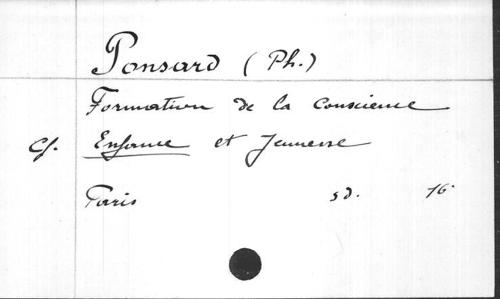 Ponsard (Ph.)
Formation de la Conscience
Cf. Enfance et Jeunesse
Paris sd. 16°